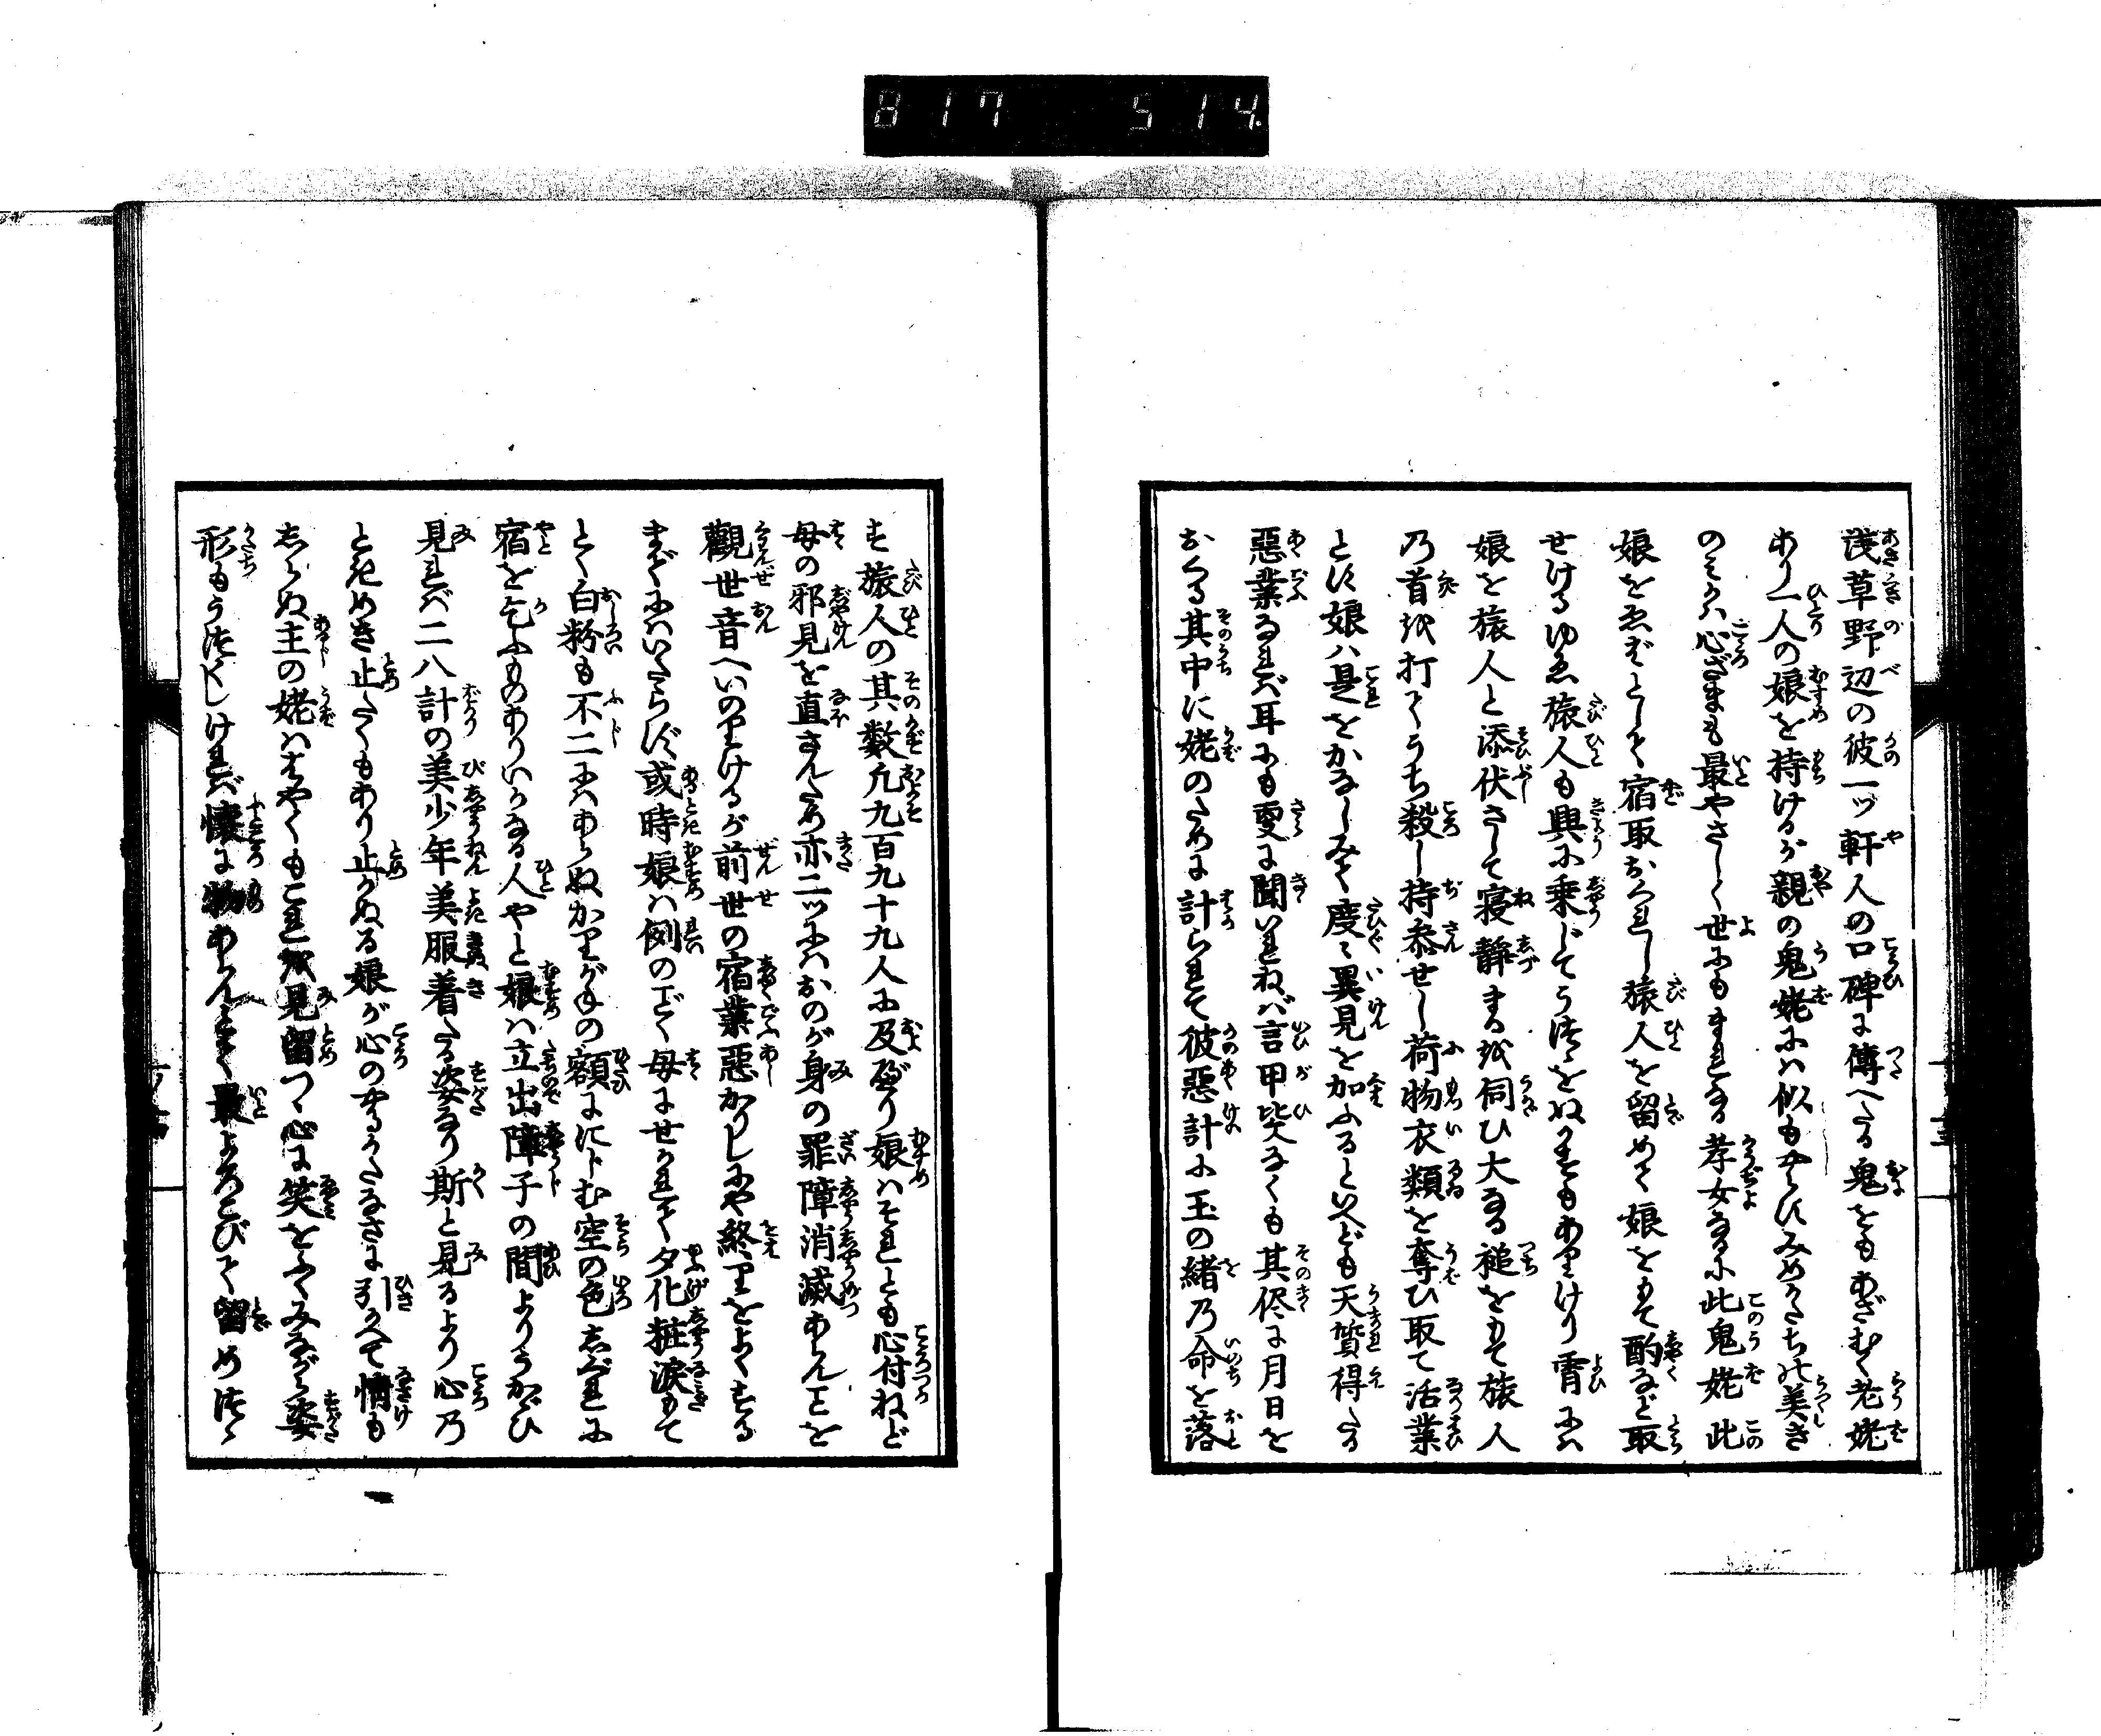 817 514
浅草野辺の彼一ッ軒人の口碑に傳へたる鬼をもあざむく老姥
あり一人の娘を持けるが親の鬼姥には似もやらずみめかたちの美き
のみかは心ざまも最やさしく世にもまれなる孝女なるに此鬼姥此
娘をゑばとして宿取おくれし旅人を留めて娘をもて酌など取
せけるゆゑ旅人も興に乗じてうつゝをぬかすもありけり宵には
娘を旅人と添伏さして寝静まるを伺ひ大なる槌をもて旅人
の首を打てうち殺し持参せし荷物衣類を奪ひ取て活業
とす娘ハ是をかなしみて度々異見を加ふるといへども天質得たる
惡業なれば耳にも更に聞いれねば言甲斐なくも其侭に月日を
おくる其中に姥のために計られて彼惡計に玉の緒の命を落
す旅人の其数凡九百九十九人に及びり娘ハそれとも心付ねど
母の邪見を直さんため亦二ッにはおのが身の罪障消滅あらんことを
觀世音へいのりけるが前世の宿業惡かりしにや終りをよくする
までにハいたらず或時娘ハ例のごく母にせかれて夕化粧涙もて
とく白粉も不二にハあらぬかりがねの額ににじむ空の色しぐれに
宿を乞ふものありいかなる人やと娘ハ立出障子の間よりうかゞひ
見れば二八計の美少年美服着たる姿なり斯と見るより心の
ときめき止たくもあり止かぬる娘が心のやるかたなさに引かへて情も
しらぬ主の姥ハはやくもこれを見留つゝ心に笑をふくみながら姿
形もうつくしければ懐に物あらんとて最よろこびて留めつゝ